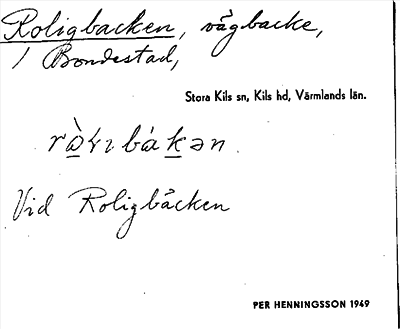 Roligbacken, vägbacke,
i Bondestad,
Stora Kils sn, Kils hd, Värmlands län.
Vid Roligbäcken
PER HENNINGSSON 1949